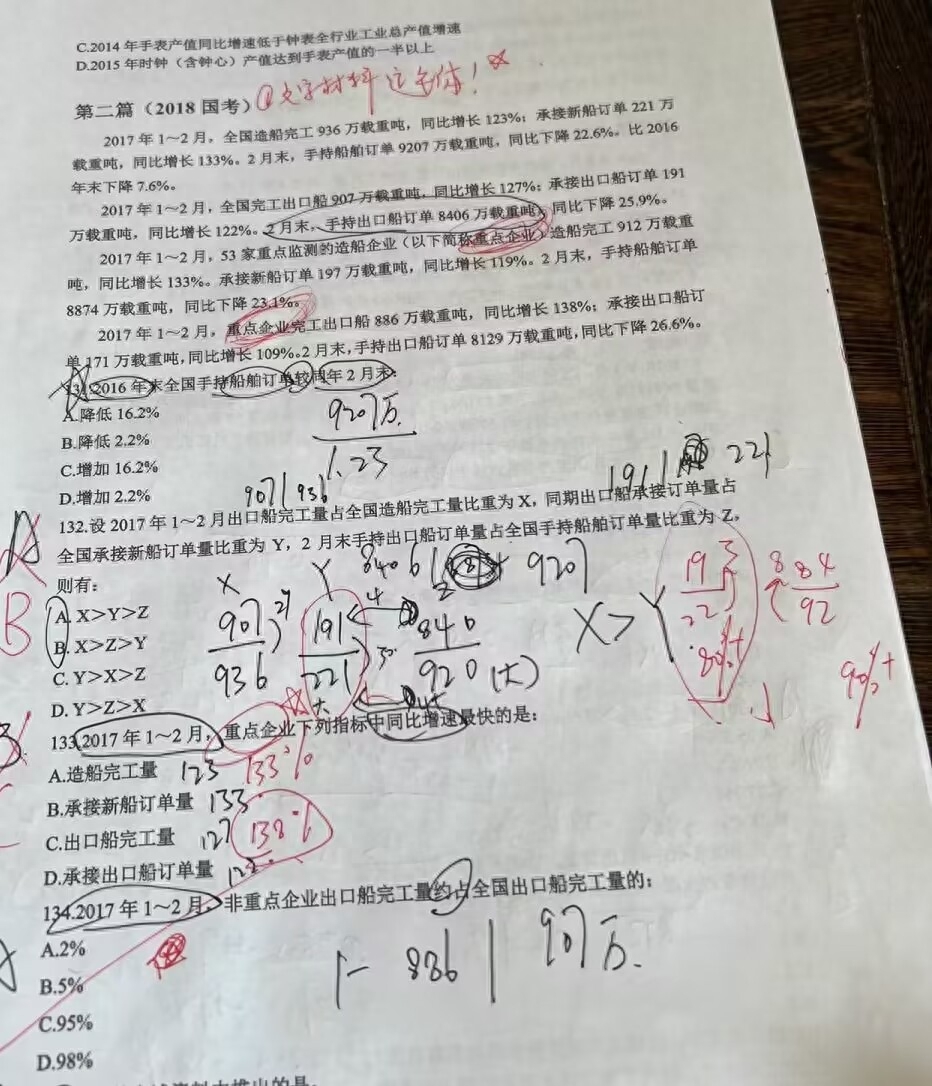 C.2014 年手表产值同比增速低于钟表全行业工业总产值增速
D.2015 年时钟（含钟心）产值达到手表产值的一半以上
第二篇（2018 国考） ①文字材料 ！
2017 年 1～2 月，全国造船完工 936 万载重吨，同比增长 123%；承接新船订单 221 万
载重吨，同比增长 133%。2 月末，手持船舶订单 9207 万载重吨，同比下降 22.6%。比 2016
年末下降 7.6%。
2017 年 1～2 月，全国完工出口船 907 万载重吨，同比增长 127%；承接出口船订单 191
万载重吨，同比增长 122%。2 月末，手持出口船订单 8406 万载重吨，同比下降 25.9%。
2017 年 1～2 月，53 家重点监测的造船企业（以下简称重点企业）造船完工 912 万载重
吨，同比增长 133%。承接新船订单 197 万载重吨，同比增长 119%。2 月末，手持船舶订单
8874 万载重吨，同比下降 23.1%。
2017 年 1～2 月，重点企业完工出口船 886 万载重吨，同比增长 138%；承接出口船订
单 171 万载重吨，同比增长 109%。2 月末，手持出口船订单 8129 万载重吨，同比下降 26.6%。
131.2016 年末全国手持船舶订单较同年 2 月末：
A.降低 16.2%
B.降低 2.2%
C.增加 16.2%
D.增加 2.2%
9207万
1.23
907 | 936
191 | 221
132.设 2017 年 1～2 月出口船完工量占全国造船完工量比重为 X，同期出口船承接订单量占
全国承接新船订单量比重为 Y，2 月末手持出口船订单量占全国手持船舶订单量比重为 Z，
则有：
8406 | 9207
A. X>Y>Z
B. X>Z>Y
C. Y>X>Z
D. Y>Z>X
B
X Y Z
907 191 840
936 221 920 (大)
29 4
大
X > Y
19
22
80%+
84
92
90%+
小
133.2017 年 1～2 月，重点企业下列指标中同比增速最快的是：
A.造船完工量 123 133%
B.承接新船订单量 133
C.出口船完工量 127 138%
D.承接出口船订单量
134.2017 年 1～2 月，非重点企业出口船完工量约占全国出口船完工量的：
A.2%
B.5%
C.95%
D.98%
1- 886 | 907万.